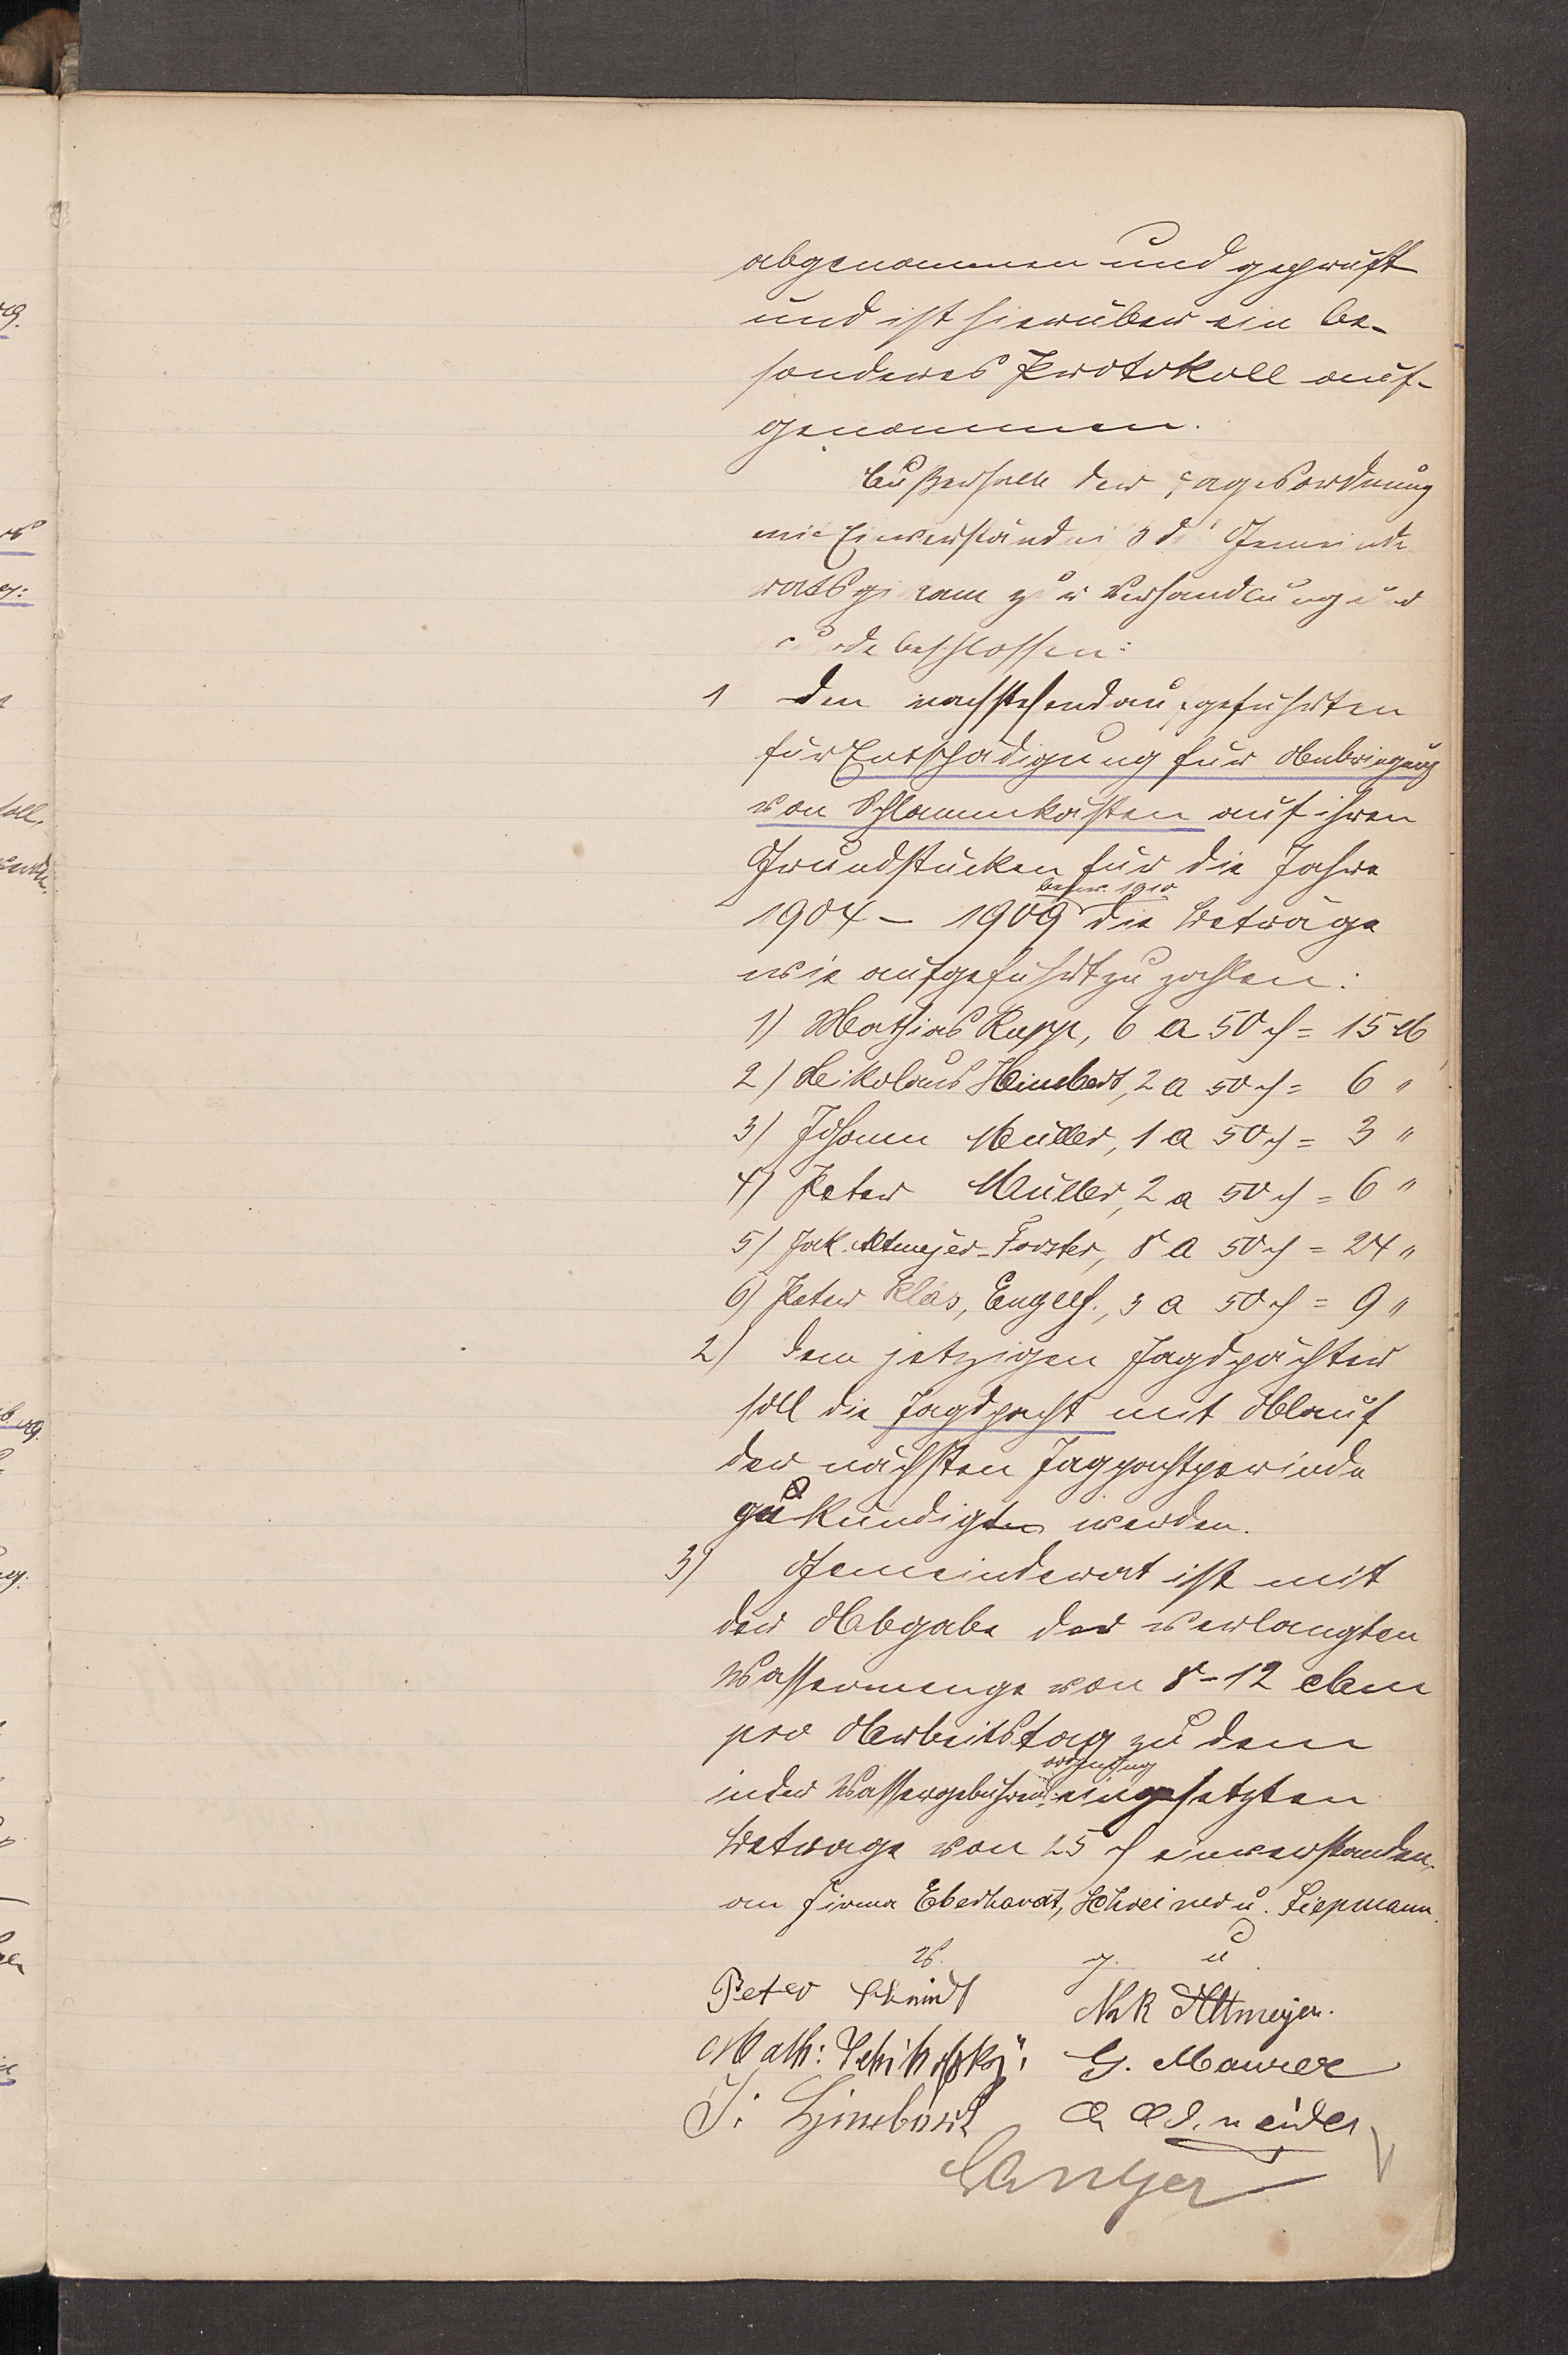 abgenommen und geprüft
und ist hierüber ein be-
sonderes Protokoll auf-
genommen.
Außerhalb der Tagesordnung
mit Einverständnis d Gemeinde
rats kam zur Verhandlung und
wurde beschlossen:
1 Den nachstehend aufgeführten
für Entschädigung für Anbringung
von Schlammkasten auf ihren
Grundstücken für die Jahre
bezw. 1910
1904 – 1909 die Beträge
wie aufgeführt zu zahlen:
1) Mathias Rupp, 6 a 50 ₰ = 15 M
2) Nikolaus Hinsbert, 2 a 50 ₰ = 6 "
3) Johann Müller, 1 a 50 ₰ = 3 "
4) Peter Müller, 2 a 50 ₰ = 6 "
5) Jak. Altmeyer-Forster, 8 a 50 ₰ = 24 "
6) Peter Klas, Englf., 3 a 50 ₰ = 9 "
2) Dem jetzigen Jagdpächter
soll die Jagdpacht mit Ablauf
der nächsten Jagpachtperiode
gekündigt werden.
3) Gemeinderat ist mit
der Abgabe der verlangten
Wassermenge von 8-12 cbm
pro Arbeitstag zu dem
ordnung
in der Wassergebühren eingesetzten
Betrage von 25 ₰ einverstanden,
an Firma Eberhardt, Schreiner u. Siepmann.
V. g. u
Peter Schmidt Nik Altmeyer.
Math: G. Maurer
J: Schneider